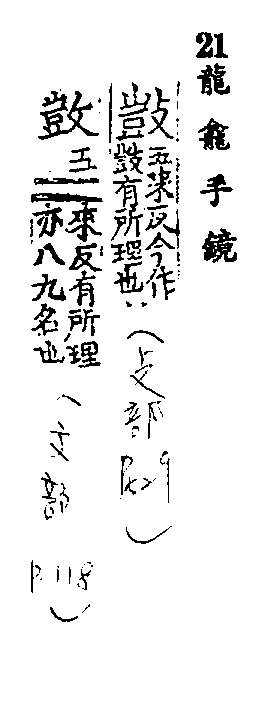 21龍龕手鏡
敳五來反今作
敳有所理也
(攴部
P529)
敳五
來反有所理
亦八九名也
(文部
P.118)